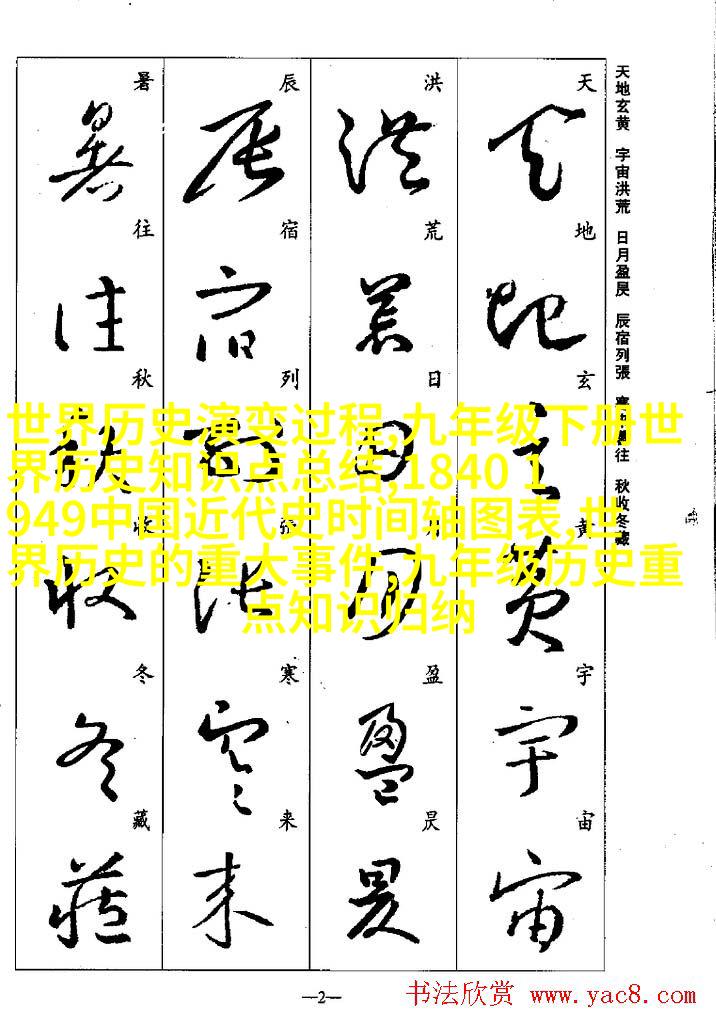 天地玄黄 宇宙洪荒 日月盈昃 辰宿列張 寒來暑往 秋收冬藏
天 地 玄 黄 宇 宙
天 地 玄 黄 宇 宙
洪 荒 日 月 盈 昃
洪 荒 日 月 盈 昃
辰 宿 列 張 寒 来
辰 宿 列 張 寒 来
暑 往 秋 收 冬 藏
暑 往 秋 收 冬 藏
世界历史演变过程,九年级下册世
界历史知识点总结,1840 1
949中国近代史时间轴图表,世
界历史的重大事件,九年级历史重
点知识归纳
—2—
书法欣赏 www.yac8.com